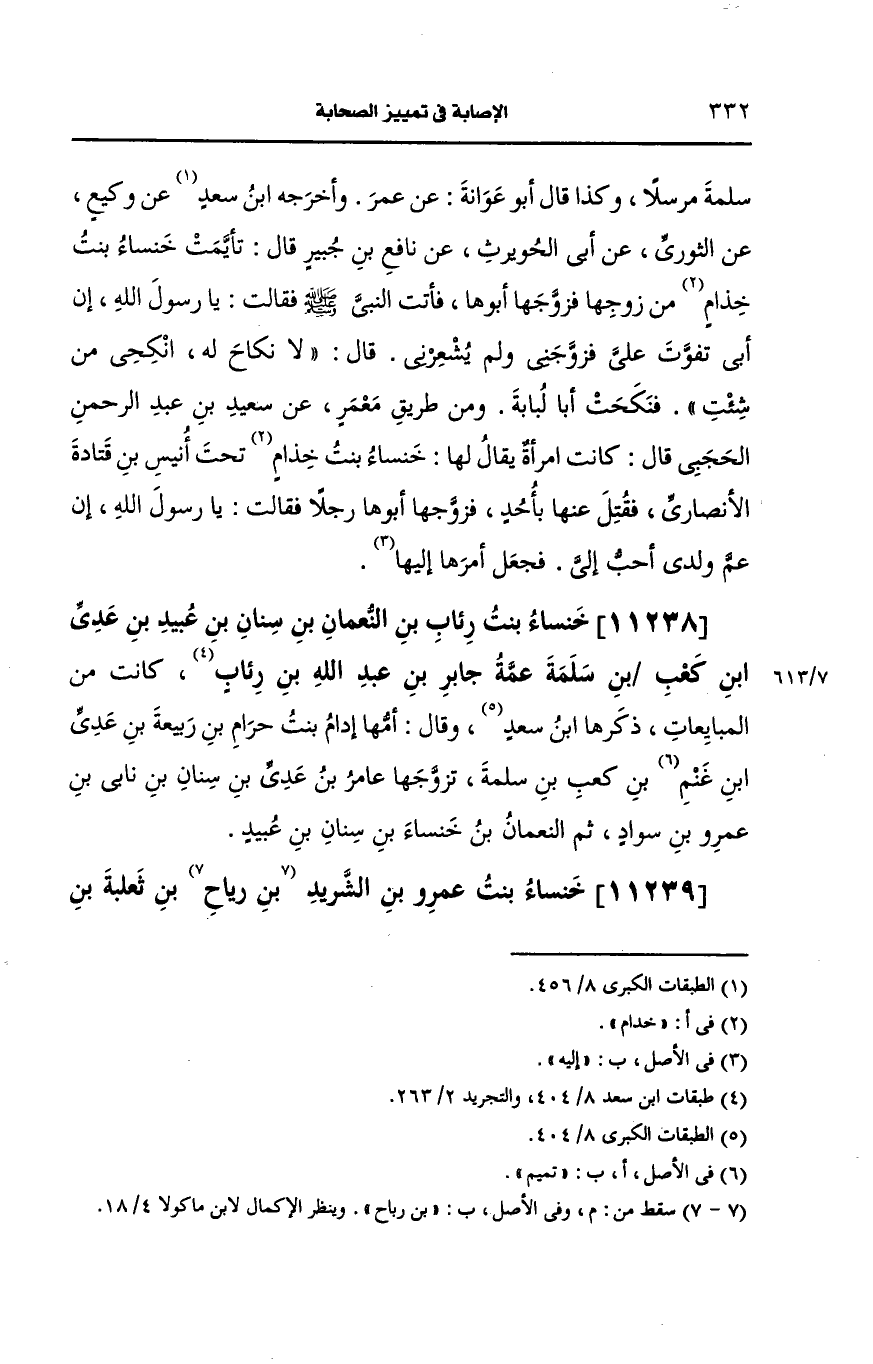 ٣٣٢ الإصابة فى تمييز الصحابة
سلمةَ مرسلًا ، وكذا قال أبو عَوَانةَ : عن عمرَ . وأخرَجه ابنُ سعدٍ(١) عن وكيعٍ ،
عن الثورىِّ ، عن أبى الحُويرثِ ، عن نافعِ بنِ جُبيرٍ قال : تأيَّمَتْ خَنساءُ بنتُ
خِذامٍ(٢) من زوجِها فزوَّجَها أبوها ، فأتت النبىَّ ﷺ فقالت : يا رسولَ اللهِ ، إن
أبى تفوَّتَ علىَّ فزوَّجَنِى ولم يُشْعِرْنِى . قال : « لا نكاحَ له ، انْكِحِى من
شِئْتِ » . فنَكَحَتْ أبا لُبابةَ . ومن طريقِ مَعْمَرٍ ، عن سعيدِ بنِ عبدِ الرحمنِ
الحَجَبِى قال : كانت امرأةٌ يقالُ لها : خَنساءُ بنتُ خِذامٍ(٢) تحتَ أُنيسِ بنِ قَتادةَ
الأنصارىِّ ، فقُتِلَ عنها بأُحُدٍ ، فزوَّجها أبوها رجلًا فقالت : يا رسولَ اللهِ ، إن
عمَّ ولدى أحبُّ إلىَّ . فجعَل أمرَها إليها(٣) .
[١١٢٣٨] خَنساءُ بنتُ رِئابِ بنِ النُّعمانِ بنِ سِنانِ بنِ عُبيدِ بنِ عَدِىِّ
ابنِ كَعْبِ /بنِ سَلَمَةَ عمَّةُ جابرِ بنِ عبدِ اللهِ بنِ رِئابٍ(٤) ، كانت من ٦١٣/٧
المبايِعاتِ ، ذكَرها ابنُ سعدٍ(٥) ، وقال : أمُّها إدامُ بنتُ حرَامِ بنِ رَبيعةَ بنِ عَدِىِّ
ابنِ غَنْمِ(٦) بنِ كعبِ بنِ سلمةَ ، تزوَّجَها عامرُ بنُ عَدِىِّ بنِ سِنانِ بنِ نابى بنِ
عمرِو بنِ سوادٍ ، ثم النعمانُ بنُ خَنساءَ بنِ سِنانِ بنِ عُبيدٍ .
[١١٢٣٩] خَنساءُ بنتُ عمرِو بنِ الشَّريدِ (٧بنِ رياحِ٧) بنِ ثَعلبةَ بنِ
(١) الطبقات الكبرى ٨/ ٤٥٦.
(٢) فى أ : « خدام » .
(٣) فى الأصل ، ب : « إليه » .
(٤) طبقات ابن سعد ٨/ ٤٠٤، والتجريد ٢/ ٢٦٣.
(٥) الطبقات الكبرى ٨/ ٤٠٤.
(٦) فى الأصل ، أ ، ب : « تميم » .
(٧ - ٧) سقط من : م ، وفى الأصل ، ب : « بن رباح » . وينظر الإكمال لابن ماكولا ٤/ ١٨.